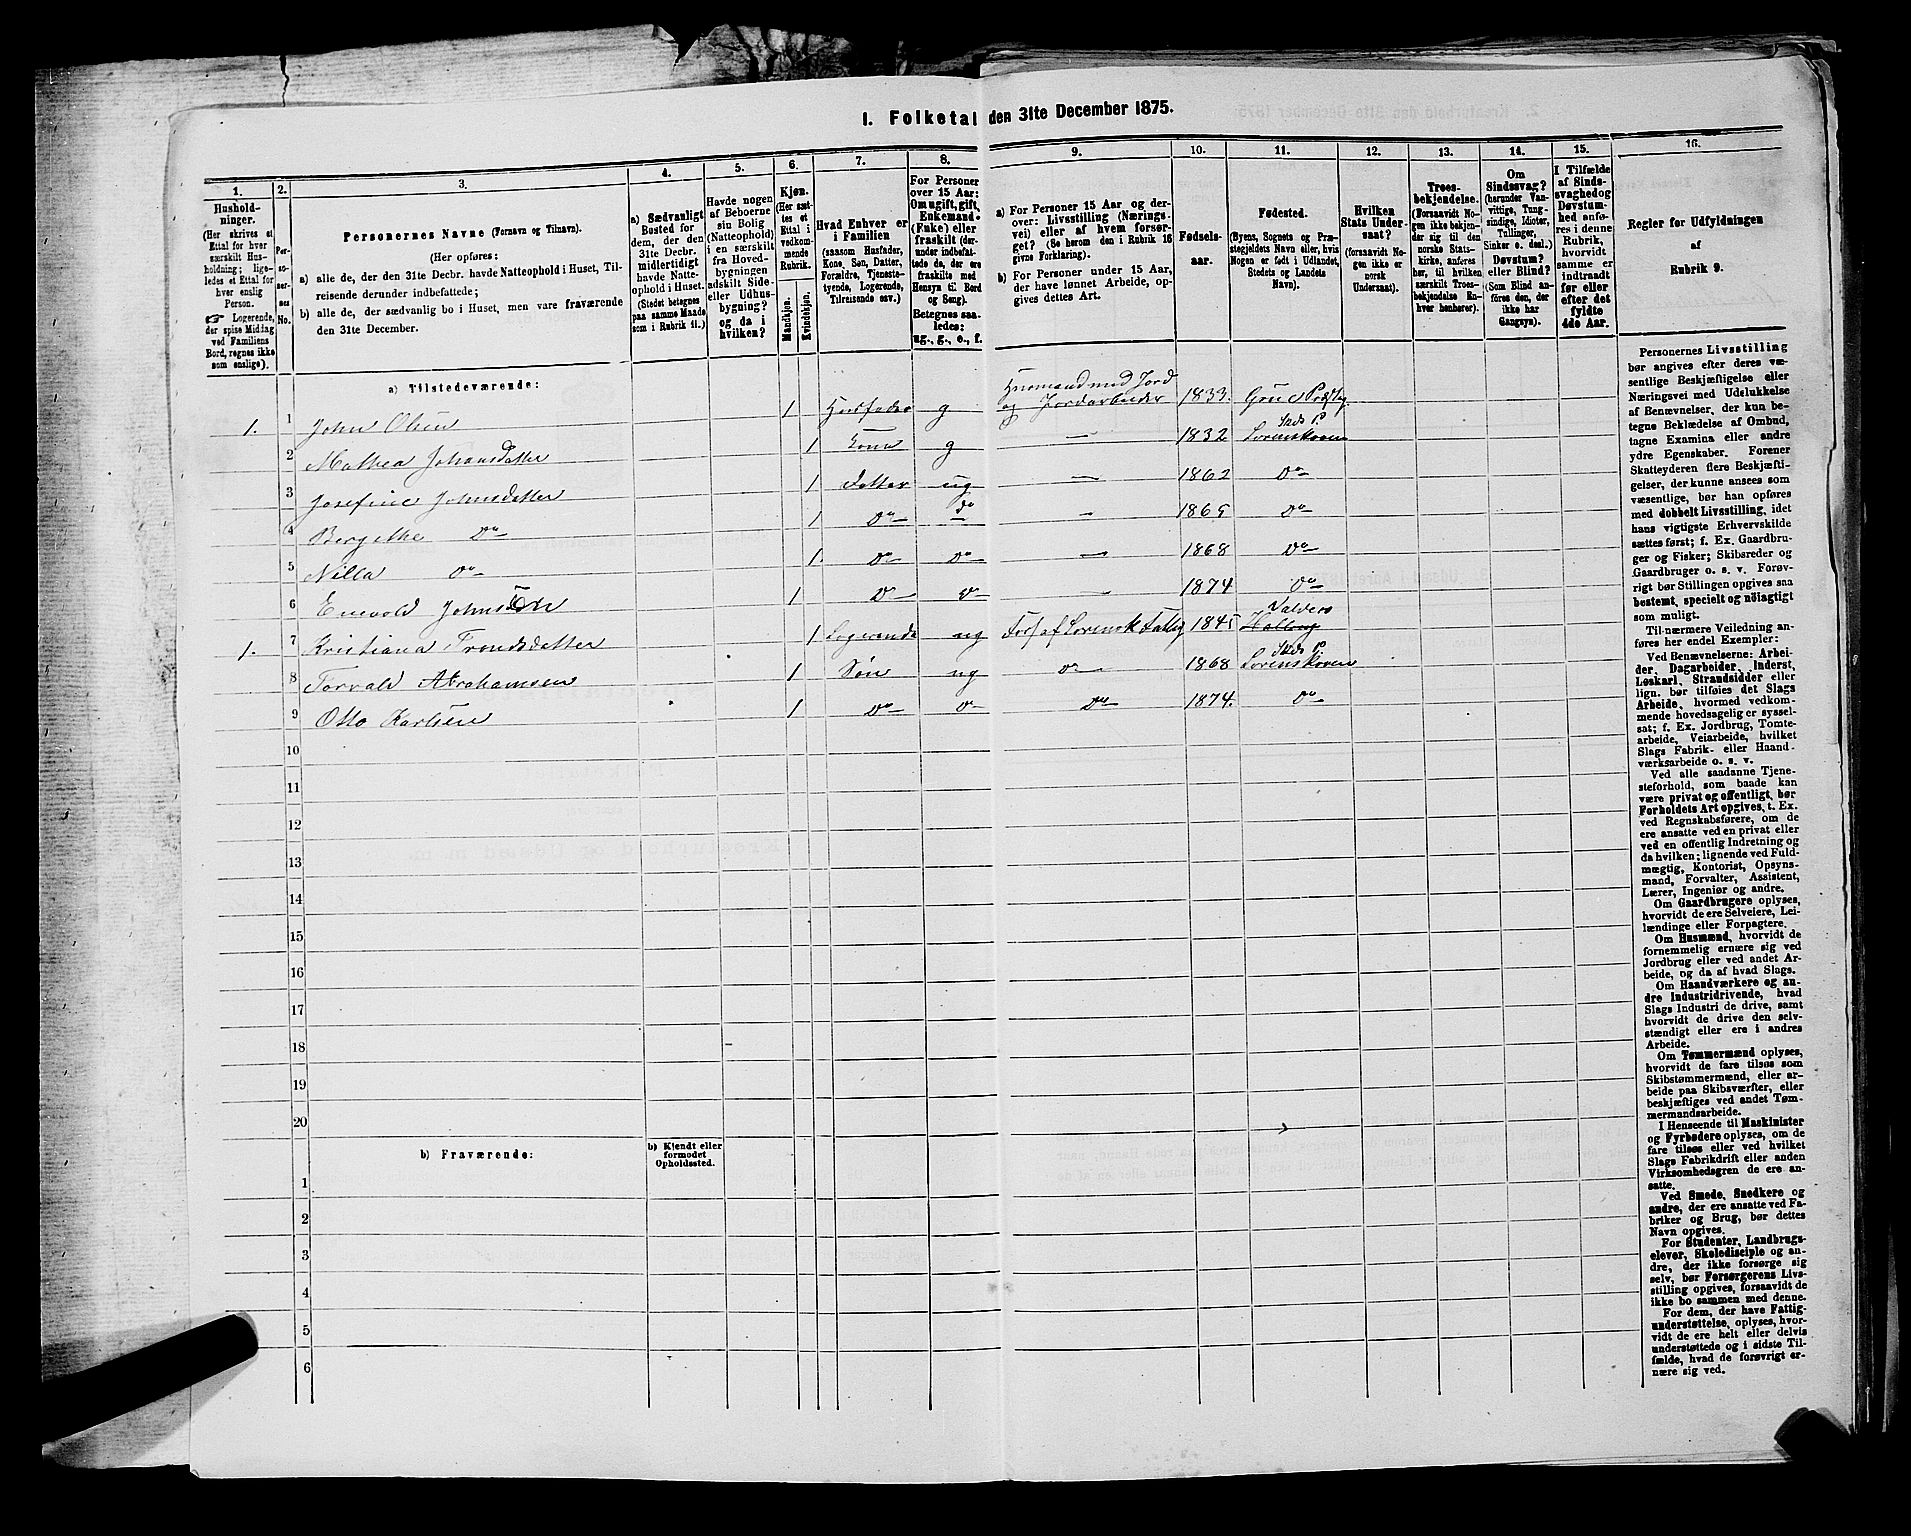 I. Folketal den 31te December 1875.
1.
Hushold-
ninger.
(Her skrives et
Ettal for hver
særskilt Hus-
holdning; lige-
ledes et Ettal for
hver enslig
Person.
☞ Logerende,
der spise Middag
ved Familiens
Bord, regnes ikke
som enslige).
2.
Per-
so-
ner-
nes
No.
3.
Personernes Navne (Fornavn og Tilnavn).
(Her opføres:
a) alle de, der den 31te Decbr. havde Natteophold i Huset, Til-
reisende derunder indbefattede;
b) alle de, der sædvanlig bo i Huset, men vare fraværende
den 31te December.
4.
a) Sædvanligt
Bosted for
dem, der den
31te Decbr.
midlertidigt
havde Natte-
ophold i Huset.
(Stedet betegnes
paa samme Maade
som i Rubrik 11.)
5.
Havde nogen
af Beboerne
sin Bolig
(Natteophold)
i en særskilt
fra Hoved-
bygningen
adskilt Side-
eller Udhus-
bygning?
og da i
hvilken?
6.
Kjøn.
(Her sæt-
tes et
Ettal i
vedkom-
mende
Rubrik.
Mandkjøn.
Kvindekjøn.
7.
Hvad Enhver er
i Familien
(saasom Husfader,
Kone, Søn, Datter,
Forældre, Tjeneste-
tyende, Logerende,
Tilreisende osv.)
8.
For Personer
over 15 Aar:
Om ugift, gift,
Enkemand
(Enke) eller
fraskilt (der-
under indbefat-
tede de, der ere
fraskilte med
Hensyn til Bord
og Seng).
Betegnes saa-
ledes:
ug., g., e., f.
9.
a) For Personer 15 Aar og der-
over: Livsstilling (Nærings-
vei) eller af hvem forsør-
get? (Se herom den i Rubrik 16
givne Forklaring).
b) For Personer under 15 Aar,
der have lønnet Arbeide, op-
gives dettes Art.
10.
Fødsels-
aar.
11.
Fødested.
(Byens, Sognets og Præ-
stegjeldets Navn eller, hvis
Nogen er født i Udlandet,
Stedets og Landets
Navn).
12.
Hvilken
Stats Under-
saat?
(forsaavidt No-
gen ikke er
norsk
Undersaat).
13.
Troes-
bekjendelse.
(Forsaavidt No-
gen ikke bekjen-
der sig til den
norske Stats-
kirke, anføres
her, til hvilken
særskilt Troes-
bekjendelse En-
hver henhører).
14.
Om
Sindssvag?
(herunder Van-
vittige, Tung-
sindige, Idioter,
Tullinger,
Sinker o. desl.)
Døvstum?
eller Blind?
(Som Blind an-
føres den, der
ikke har
Gangsyn).
15.
I Tilfælde
af Sinds-
svaghed og
Døvstum-
hed anfø-
res i denne
Rubrik,
hvorvidt
samme er
indtraadt
før eller
efter det
fyldte
4de Aar.
16.
Regler for Udfyldningen
af
Rubrik 9.
a) Tilstedeværende:
1. 1 John Olsen 1 Husfader g Husmand med Jord og Jordarbeider 1833. Grue Præsteg
2 Mathea Johansdatter 1 Kone g — 1832 Skds P. Lørenskoven
3 Josefine Johnsdatter 1 Datter ug — 1862 Do
4 Bergithe Do 1 Do do — 1865 Do
5 Nilla Do 1. Do Do — 1868 Do
6 Enevold Johnsen 1 Do Do — 1874 Do
1. 7 Kristiana Trondsdatter 1 Logerende ug Fors af Lørensk Fattig 1845 Valders Halling
8 Torvald Abrahamsen 1 Søn ug Do 1868 Skds P. Lørenskoven
9 Otto Karlsen 1 Do Do Do 1874. Do
10
11
12
13
14
15
16
17
18
19
20
b) Fraværende:
b) Kjendt eller
formodet
Opholdssted.
1
2
3
4
5
6
Personernes Livsstilling
bør angives efter deres væ-
sentlige Beskjæftigelse eller
Næringsvei med Udelukkelse
af Benævnelser, der kun be-
tegne Beklædelse af Ombud,
tagne Examina eller andre
ydre Egenskaber. Forener
Skatteyderen flere Beskjæfti-
gelser, der kunne ansees som
væsentlige, bør han opføres
med dobbelt Livsstilling, idet
hans vigtigste Erhvervskilde
sættes først; f. Ex. Gaardbru-
ger og Fisker; Skibsreder og
Gaardbruger o. s. v. Forøv-
rigt bør Stillingen opgives saa
bestemt, specielt og nöiagtigt
som muligt.
Til nærmere Veiledning an-
føres her endel Exempler:
Ved Benævnelserne: Arbei-
der, Dagarbeider, Inderst,
Løskarl, Strandsidder eller
lign. bør tilføies det Slags
Arbeide, hvormed vedkom-
mende hovedsagelig er syssel-
sat; f. Ex. Jordbrug, Tomte-
arbeide, Veiarbeide, hvilket
Slags Fabrik- eller Haand-
værksarbeide o. s. v.
Ved alle saadanne Tjene-
steforhold, som baade kan
være privat og offentligt, bør
Forholdets Art opgives, t. Ex.
ved Regnskabsførere, om de
ere ansatte ved en privat eller
ved en offentlig Indretning og
da hvilken; lignende ved Fuld-
mægtig, Kontorist, Opsyns-
mand, Forvalter, Assistent,
Lærer, Ingeniør og andre.
Om Gaardbrugere oplyses,
hvorvidt de ere Selveiere, Lei-
lændinge eller Forpagtere.
Om Husmænd, hvorvidt de
fornemmelig ernære sig ved
Jordbrug eller ved andet Ar-
beide, og da af hvad Slags.
Om Haandværkere og an-
dre Industridrivende, hvad
Slags Industri de drive, samt
hvorvidt de drive den selv-
stændigt eller ere i andres
Arbeide.
Om Tømmermænd oplyses,
hvorvidt de fare tilsøs som
Skibstømmermænd, eller ar-
beide paa Skibsværfter, eller
beskjæftiges ved andet Tøm-
mermandsarbeide.
I Henseende til Maskinister
og Fyrbødere oplyses, om de
fare tilsøs eller ved hvilket
Slags Fabrikdrift eller anden
Virksomhedsgren de ere an-
satte.
Ved Smede, Snedkere og
andre, der ere ansatte ved Fa-
briker og Brug, bør dettes
Navn opgives.
For Studenter, Landbrugs-
elever, Skoledisciple og an-
dre, der ikke forsørge sig
selv, bør Forsørgerens Livs-
stilling opgives, forsaavidt de
ikke bo sammen med denne.
For dem, der have Fattig-
understøttelse, oplyses, hvor-
vidt de ere helt eller delvis
understøttede og i sidste Til-
fælde, hvad de forøvrigt er-
nære sig ved.